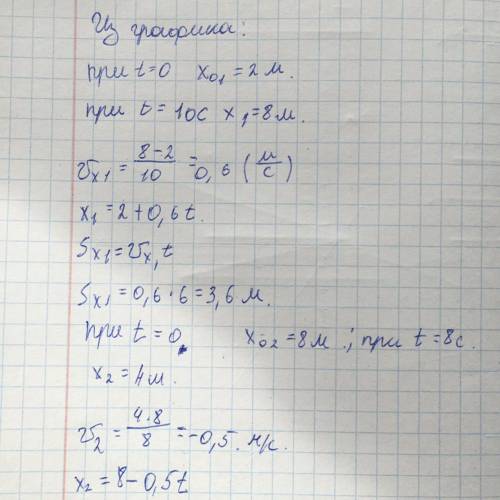 Из графика:
при t=0 x₀₁ = 2 м.
при t = 10с x₁ = 8 м.
𝒱x₁ = (8-2)/10 = 0,6 (м/с)
x₁ = 2 + 0,6 t.
Sx₁ = 𝒱x₁ t
Sx₁ = 0,6 · 6 = 3,6 м.
при t = 0. x₀₂ = 8 м.; при t = 8 с.
x₂ = 4 м.
𝒱₂ = (4·8)/8 = -0,5. м/с.
x₂ = 8 - 0,5t